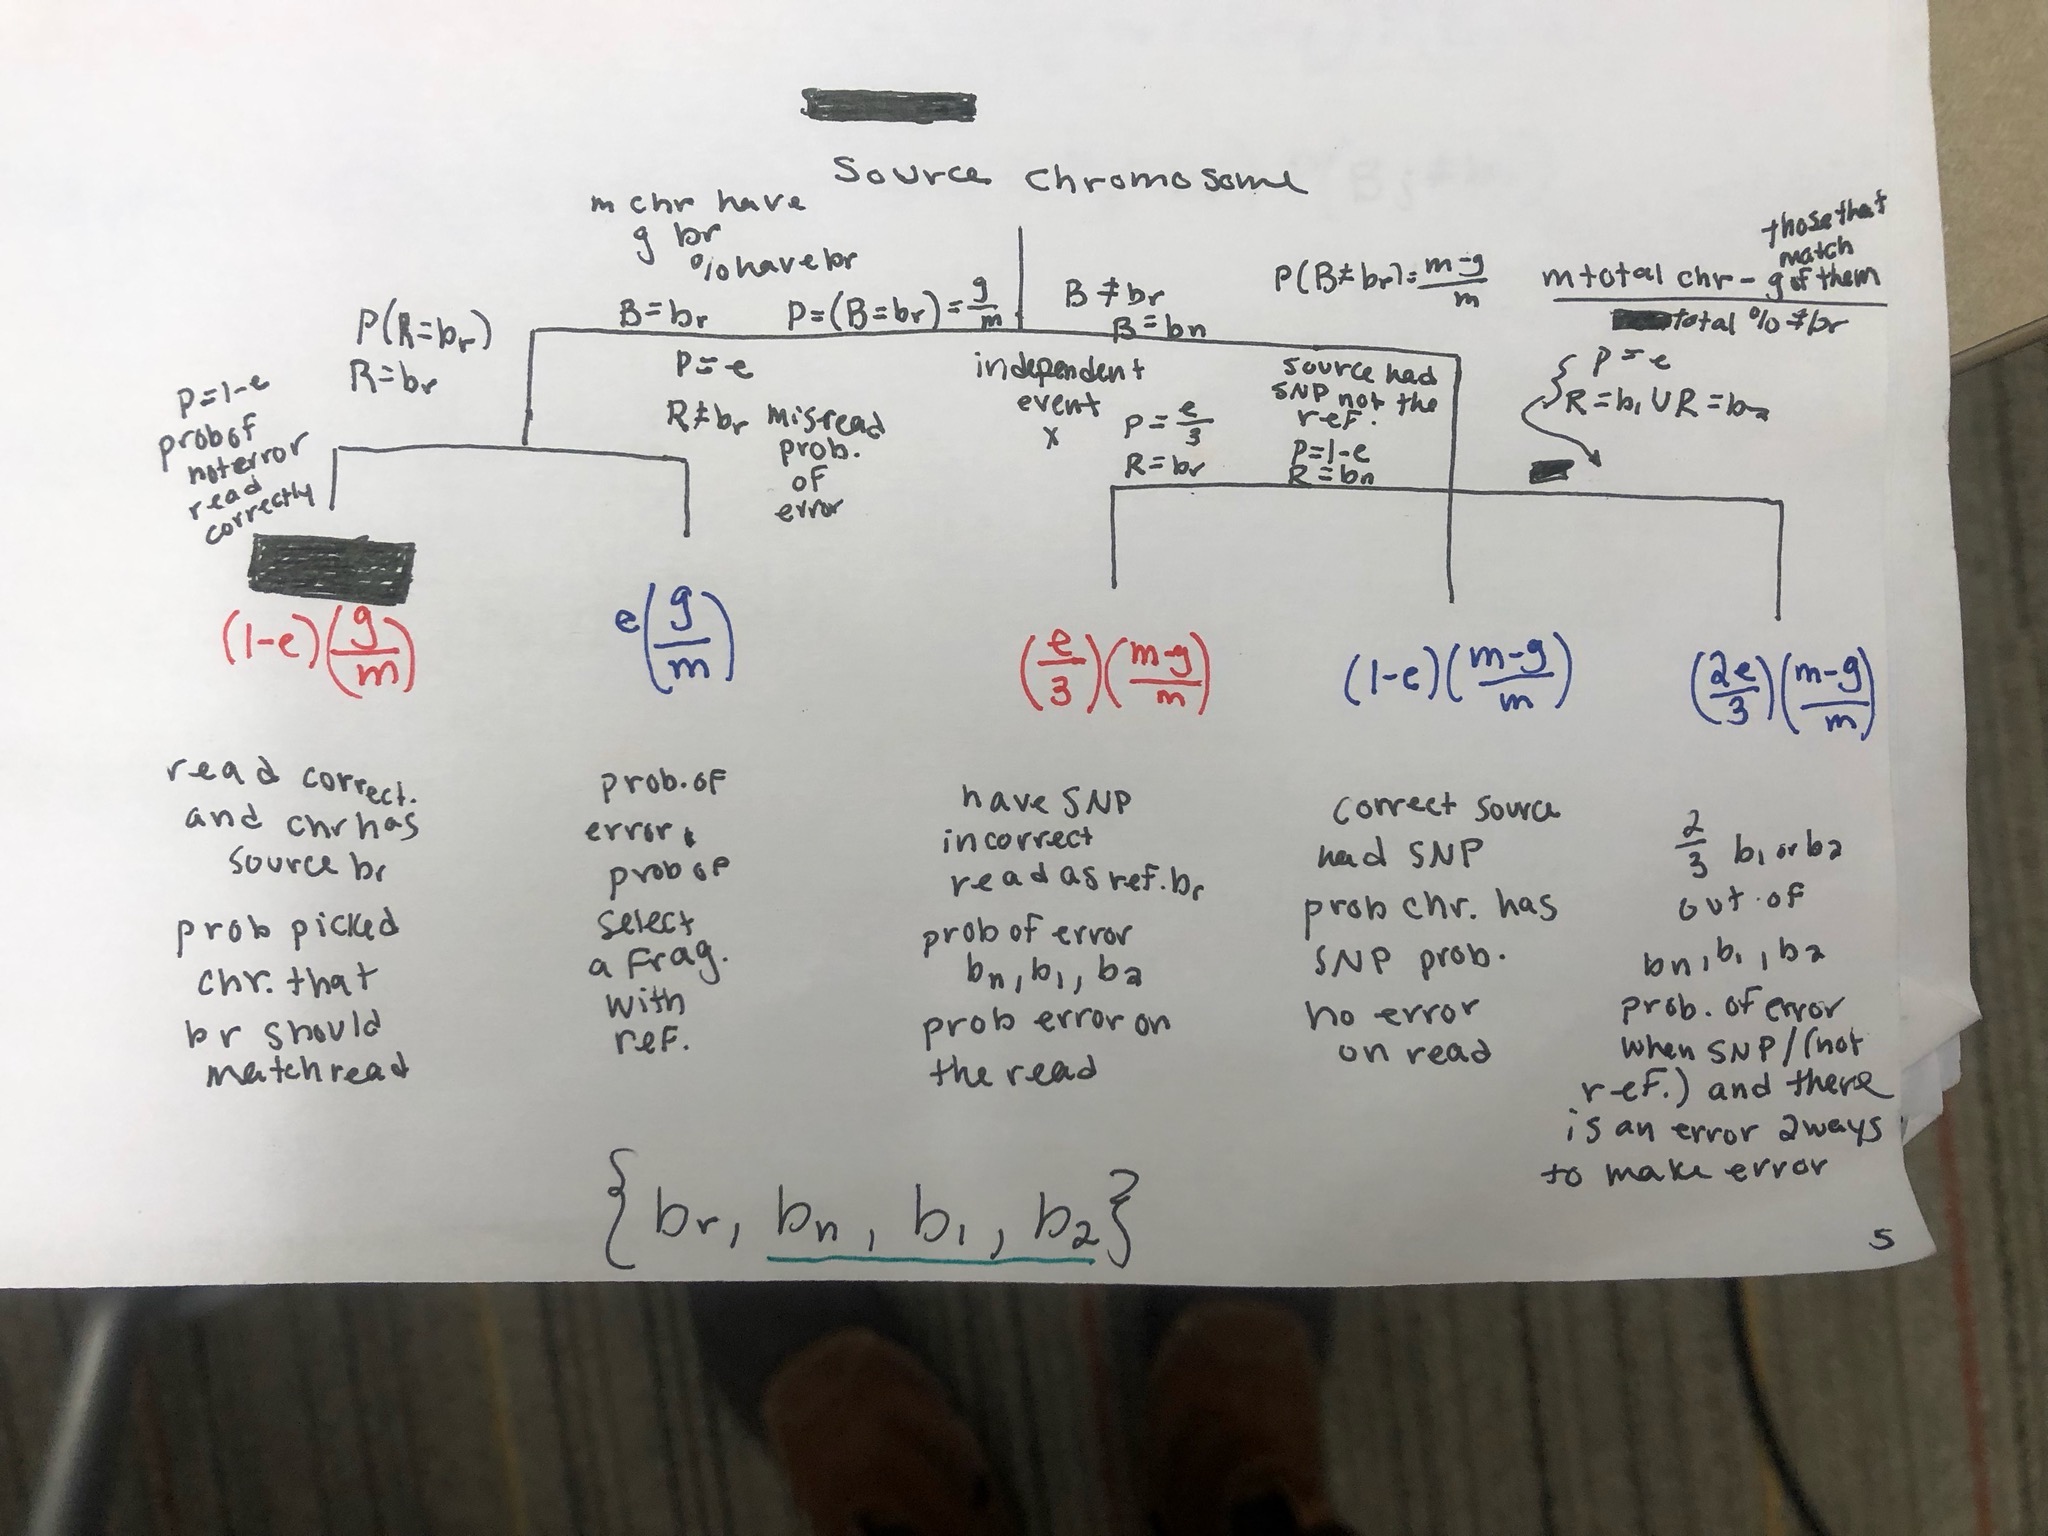 Source Chromosome
m chr have
g br
% have br
P(R=br)
R=br
B=br
P=(B=br)=g/m
B≠br
B=bn
P(B≠br)=m-g/m
those that
match
m total chr - g of them
total % ≠ br
P=1-e
prob of
not error
read
correctly
P=e
R≠br misread
prob.
of
error
independent
event
x
P=e/3
R=br
source had
SNP not the
ref.
P=1-e
R=bn
P=e
R=b1 U R=b2
(1-e)(g/m)
e(g/m)
(e/3)(m-g/m)
(1-e)(m-g/m)
(2e/3)(m-g/m)
read correct.
and chr has
source br
prob picked
chr. that
br should
match read
prob. of
error &
prob of
select
a frag.
with
ref.
have SNP
incorrect
read as ref. br
prob of error
bn, b1, b2
prob error on
the read
correct source
had SNP
prob chr. has
SNP prob.
no error
on read
2/3 b1 or b2
out of
bn, b1, b2
prob. of error
when SNP/(not
ref.) and there
is an error 2ways
to make error
{br, bn, b1, b2}
5